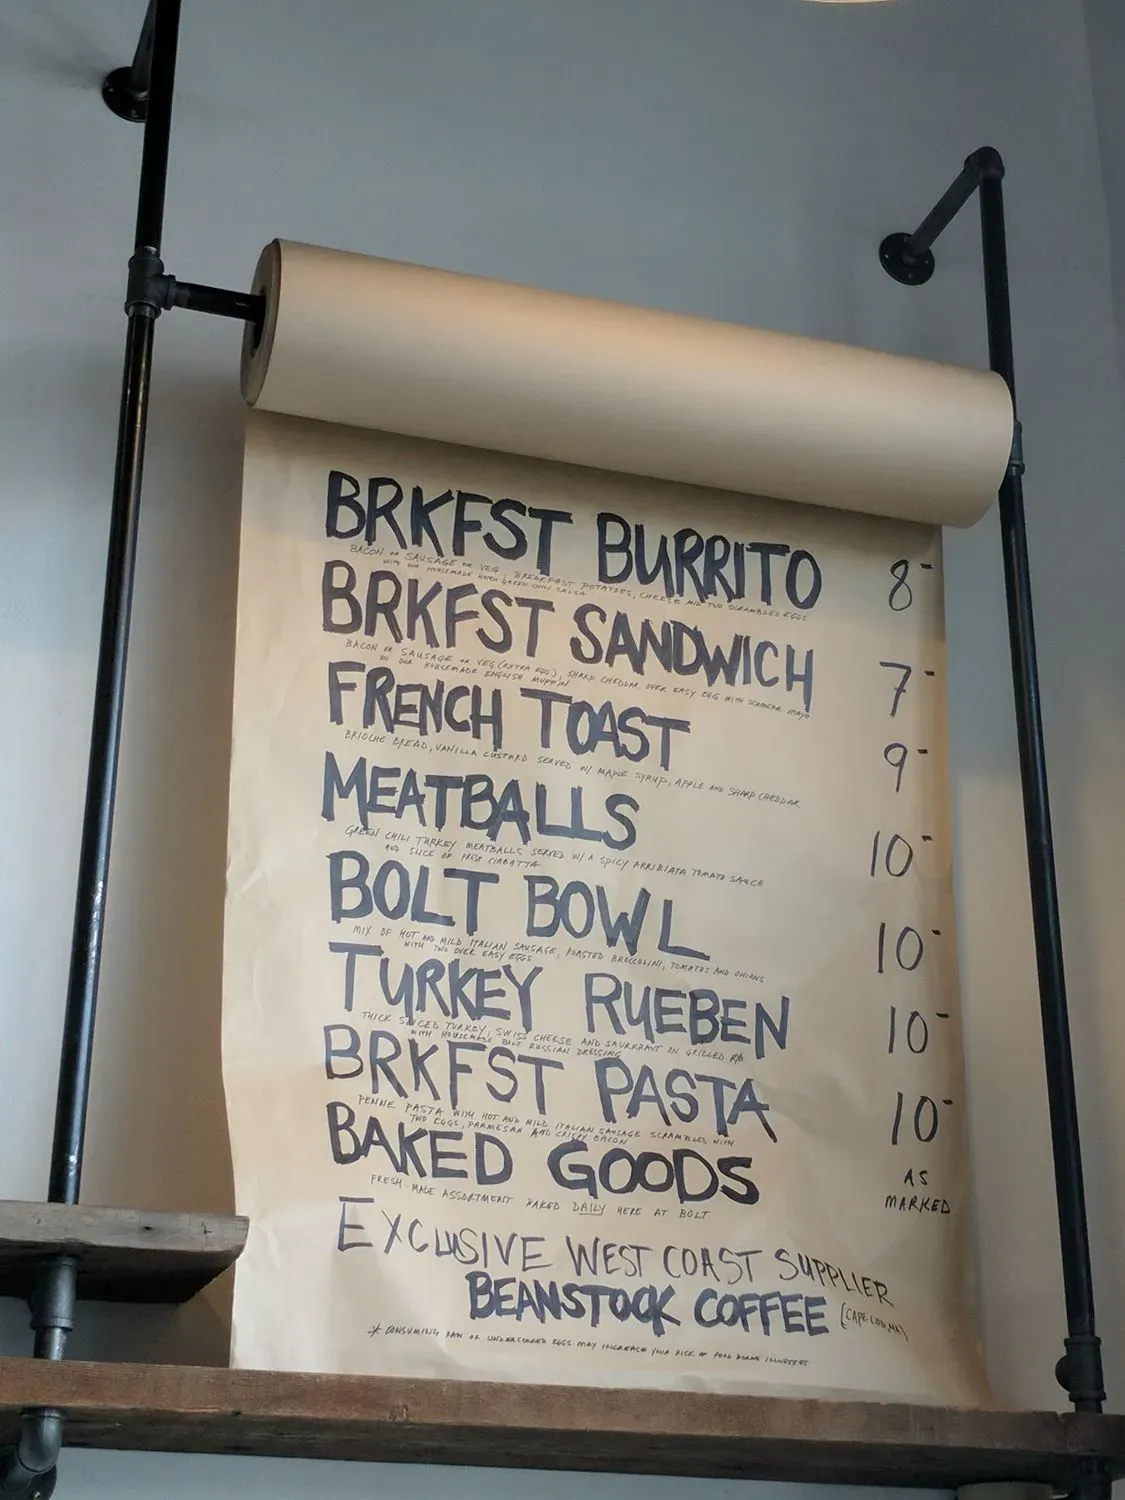 BRKFST BURRITO 8-
BACON OR SAUSAGE OR VEG, BREAKFAST POTATOES, CHEESE AND TWO SCRAMBLED EGGS
WITH OUR HOUSEMADE HATCH GREEN CHILI SALSA
BRKFST SANDWICH 7-
BACON OR SAUSAGE OR VEG (EXTRA EGG), SHARP CHEDDAR, OVER EASY EGG WITH MAYO
ON OUR HOUSEMADE ENGLISH MUFFIN
FRENCH TOAST 9-
BRIOCHE BREAD, VANILLA CUSTARD SERVED W/ MAPLE SYRUP, APPLE AND SHARP CHEDDAR
MEATBALLS 10-
GREEN CHILI TURKEY MEATBALLS SERVED W/ A SPICY ARRIBIATA TOMATO SAUCE
AND SLICE OF FRESH CIABATTA
BOLT BOWL 10-
MIX OF HOT AND MILD ITALIAN SAUSAGE, ROASTED BROCCOLINI, TOMATOS AND ONIONS
WITH TWO OVER EASY EGGS
TURKEY RUEBEN 10-
THICK SLICED TURKEY, SWISS CHEESE AND SAURKRAUT ON GRILLED
WITH HOUSEMADE BOLT RUSSIAN DRESSING
BRKFST PASTA 10-
PENNE PASTA WITH HOT AND MILD ITALIAN SAUSAGE SCRAMBLED WITH
TWO EGGS, PARMESAN AND CRISPY BACON
BAKED GOODS AS MARKED
FRESH-MADE ASSORTMENT BAKED DAILY HERE AT BOLT
EXCLUSIVE WEST COAST SUPPLIER
BEANSTOCK COFFEE (CAPE COD, MA)
* CONSUMING RAW OR UNDERCOOKED EGGS MAY INCREASE YOUR RISK OF FOOD BORNE ILLNESSES